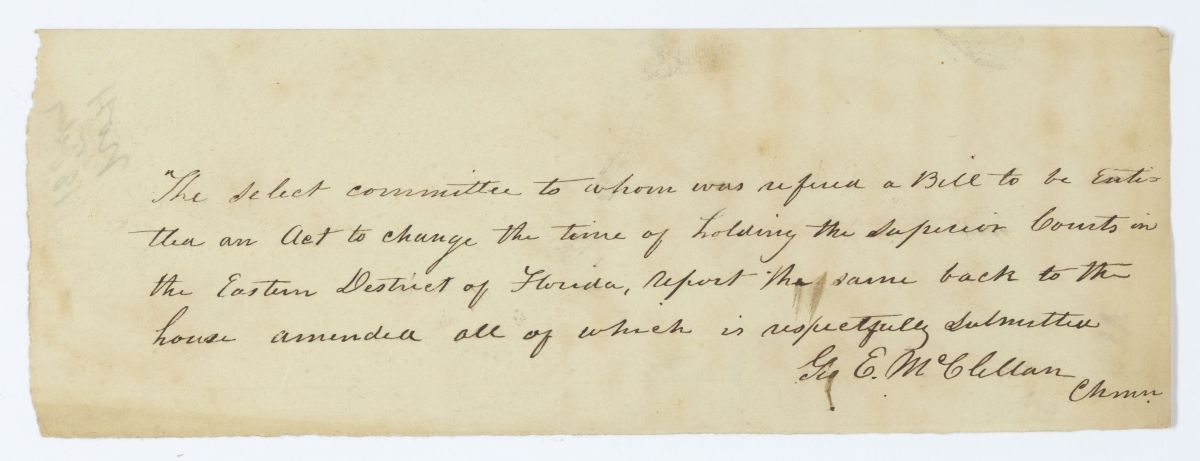 "The select committee to whom was refered a Bill to be Enti=
tled an Act to change the time of holding the Superior Courts in
the Eastern Destrict of Florida, report the same back to the
house amended all of which is respectfully submitted
Geo E. McClellan
Chmn.